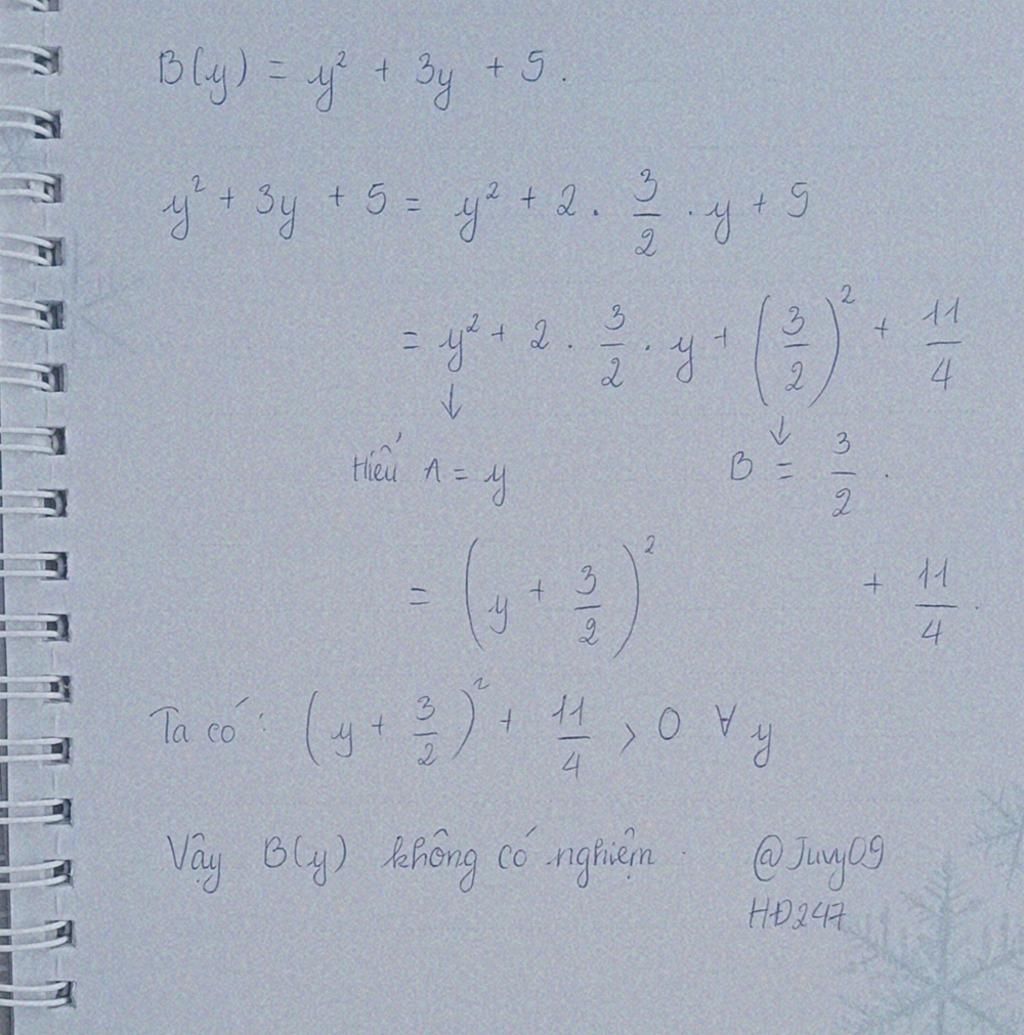 B(y) = y² + 3y + 5.
y² + 3y + 5 = y² + 2 . 3/2 . y + 5
= y² + 2 . 3/2 . y + (3/2)² + 11/4
↓ ↓
Hiểu A = y B = 3/2 .
= (y + 3/2)² + 11/4 .
Ta có : (y + 3/2)² + 11/4 > 0 ∀ y
Vậy B(y) không có nghiệm . @Juvy09
HĐ247